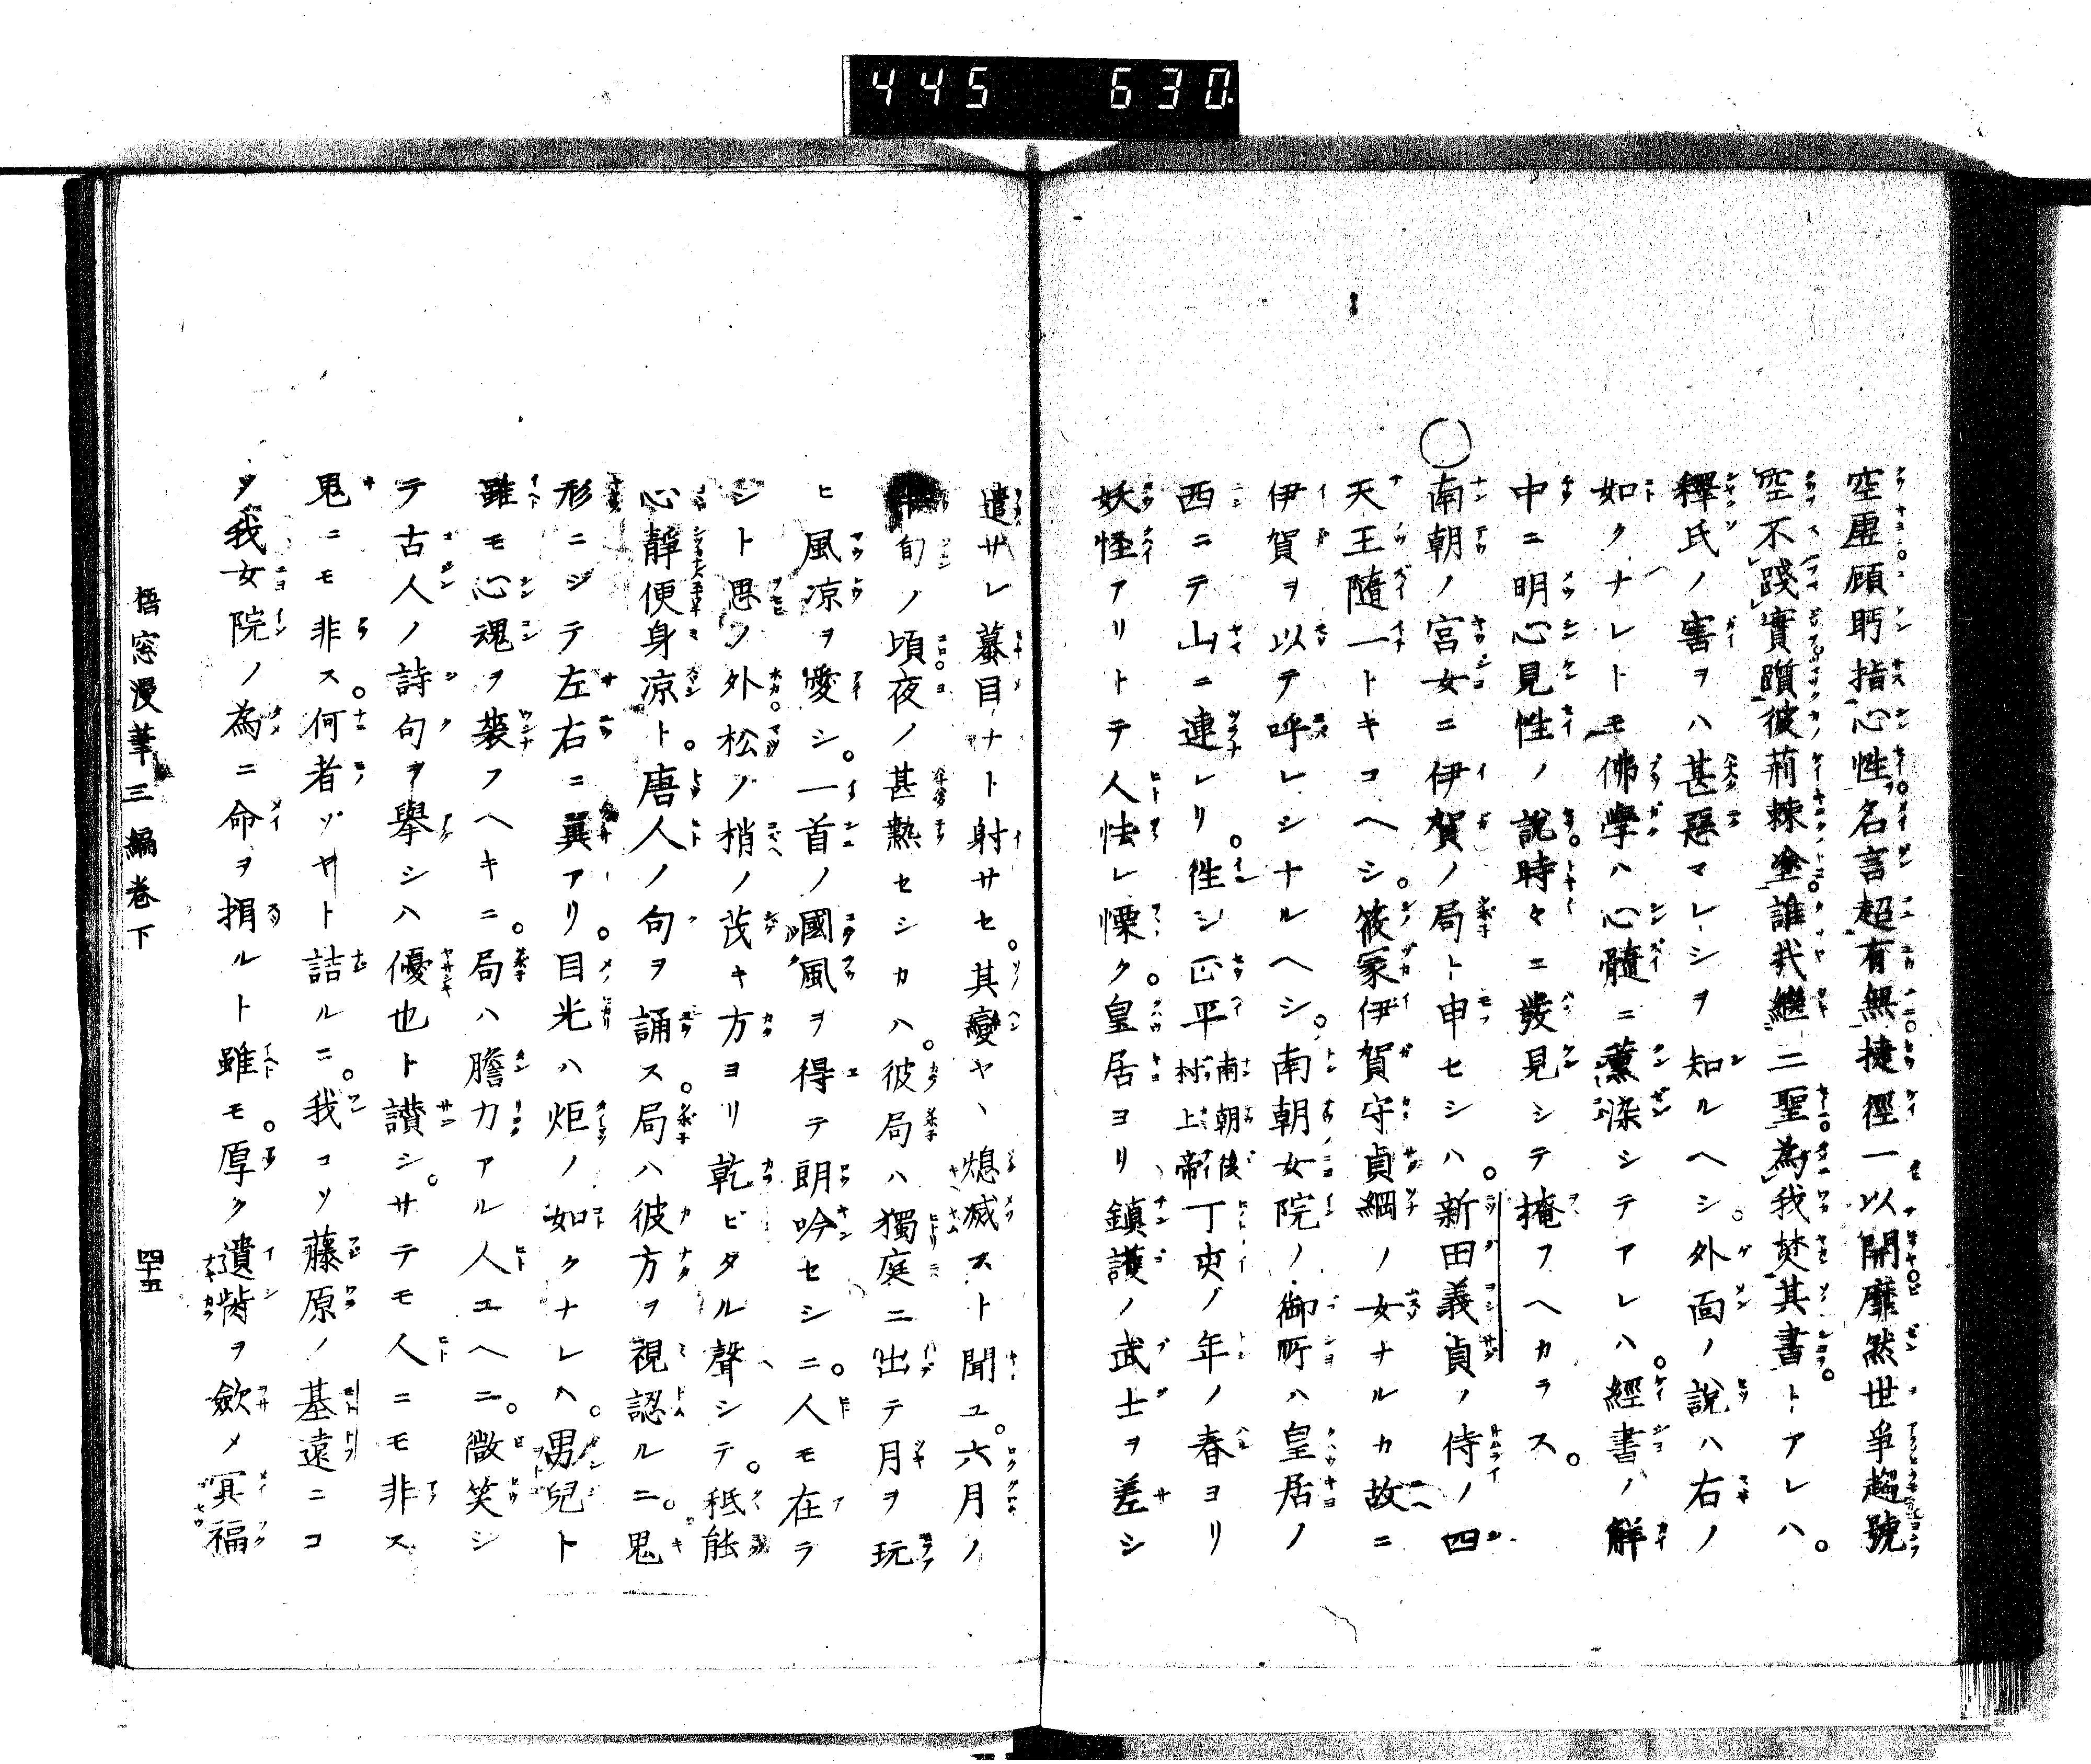 445 630
空虚顧眄指心性名言超有無捷徑一以開靡然世爭趨號
空不踐實躓彼荊棘塗誰哉繼二聖為我焚其書トアレハ。
釋氏ノ害ヲハ甚惡マレシヲ知ルヘシ。外面ノ說ハ右ノ
如クナレトモ佛學ハ心髓ニ薰染シテアレハ。經書ノ解
中ニ明心見性ノ說。時々ニ發見シテ掩フヘカラス。
○南朝ノ宮女ニ伊賀ノ局ト申セシハ。新田義貞ノ侍ノ四
天王隨一トキコヘシ。篠冢伊賀守貞綱ノ女ナルカ故ニ
伊賀ヲ以テ呼レシナルヘシ。南朝女院ノ御所ハ皇居ノ
西ニテ山ニ連レリ。徃シ正平南朝後村上帝丁亥ノ年ノ春ヨリ
妖怪アリトテ人怯レ慄ク。皇居ヨリ鎮護ノ武士ヲ差シ
遣サレ蟇目ナト射サセ。其變ヤヽ熄滅スト聞ユ。六月ノ
中旬ノ頃夜ノ甚熱セシカハ。彼局ハ獨庭ニ出テ月ヲ玩
ヒ風凉ヲ愛シ。一首ノ國風ヲ得テ朗吟セシニ。人モ在ラ
シト思ノ外松ノ梢ノ茂キ方ヨリ乾ビタル聲シテ。秪能
心靜便身凉ト。唐人ノ句ヲ誦ス。局ハ彼方ヲ視認ルニ。鬼
形ニシテ左右ニ翼アリ。目光ハ炬ノ如クナレハ。男兒ト
雖モ心魂ヲ褻フヘキニ。局ハ膽力アル人ユヘニ。微笑シ
テ古人ノ詩句ヲ擧シハ優也ト讃シ。サテモ人ニモ非ス
鬼ニモ非ス。何者ソヤト詰ルニ。我コソ藤原ノ基遠ニコ
ソ我女院ノ為ニ命ヲ捐ルト雖モ。厚ク遺胔ヲ斂メ冥福
梧窓漫筆三編卷下　四十五